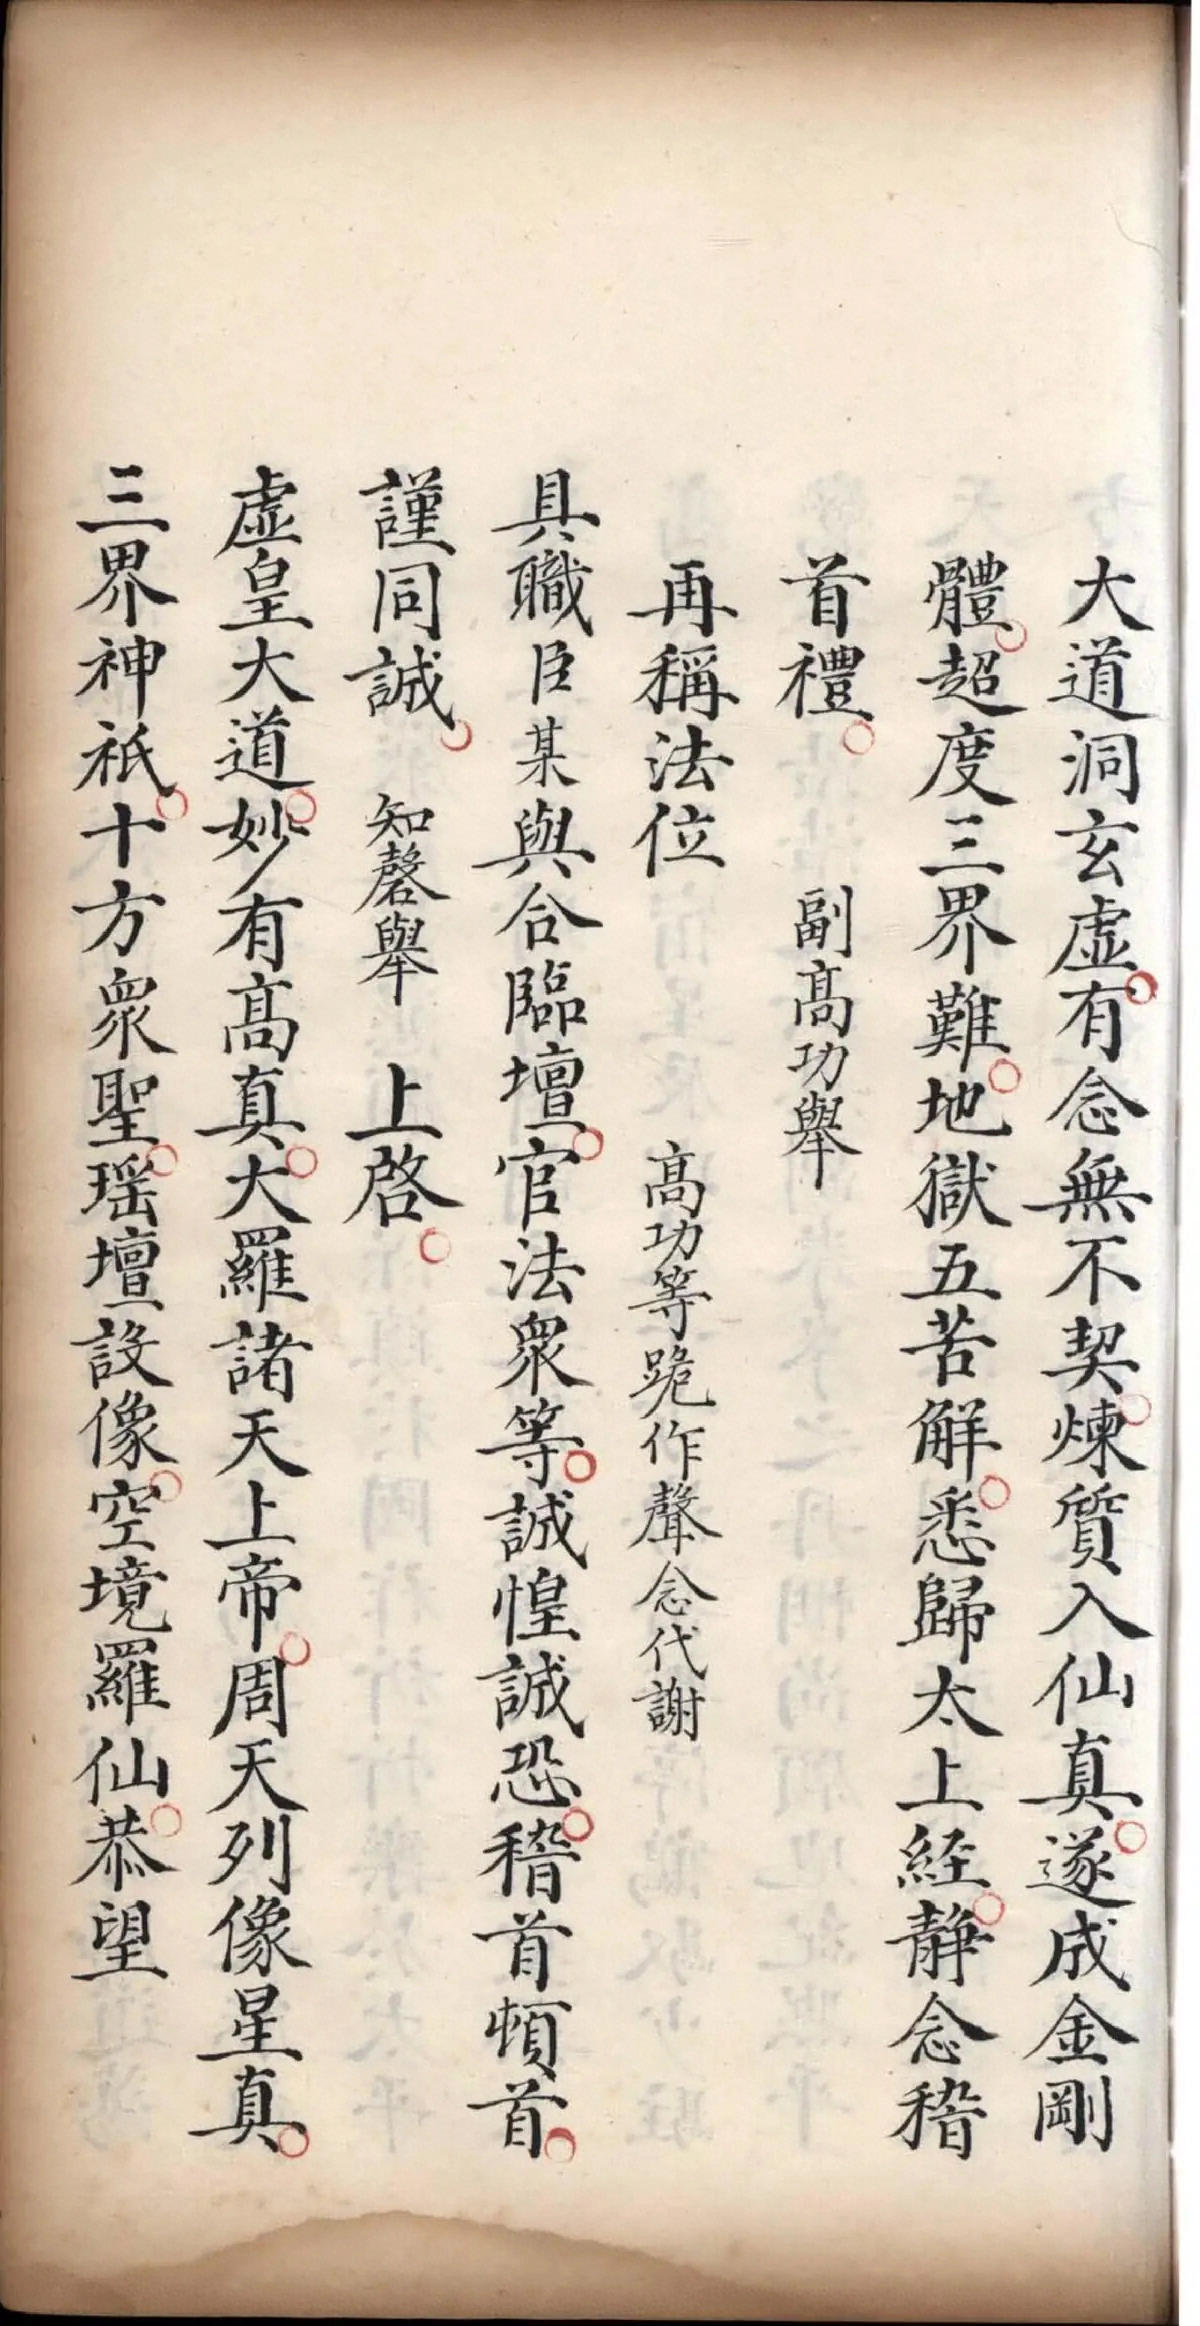 大道洞玄虛有念無不契煉質入仙真遂成金剛
體超度三界難地獄五苦解悉歸太上經静念稽
首禮 副髙功舉
再稱法位 髙功等跪作聲念代謝
具職臣某與合臨壇官法衆等誠惶誠恐稽首頓首
謹同誠 知磬舉 上啓
虛皇大道妙有髙真大羅諸天上帝周天列像星真
三界神祇十方衆聖瑶壇設像空境羅仙恭望